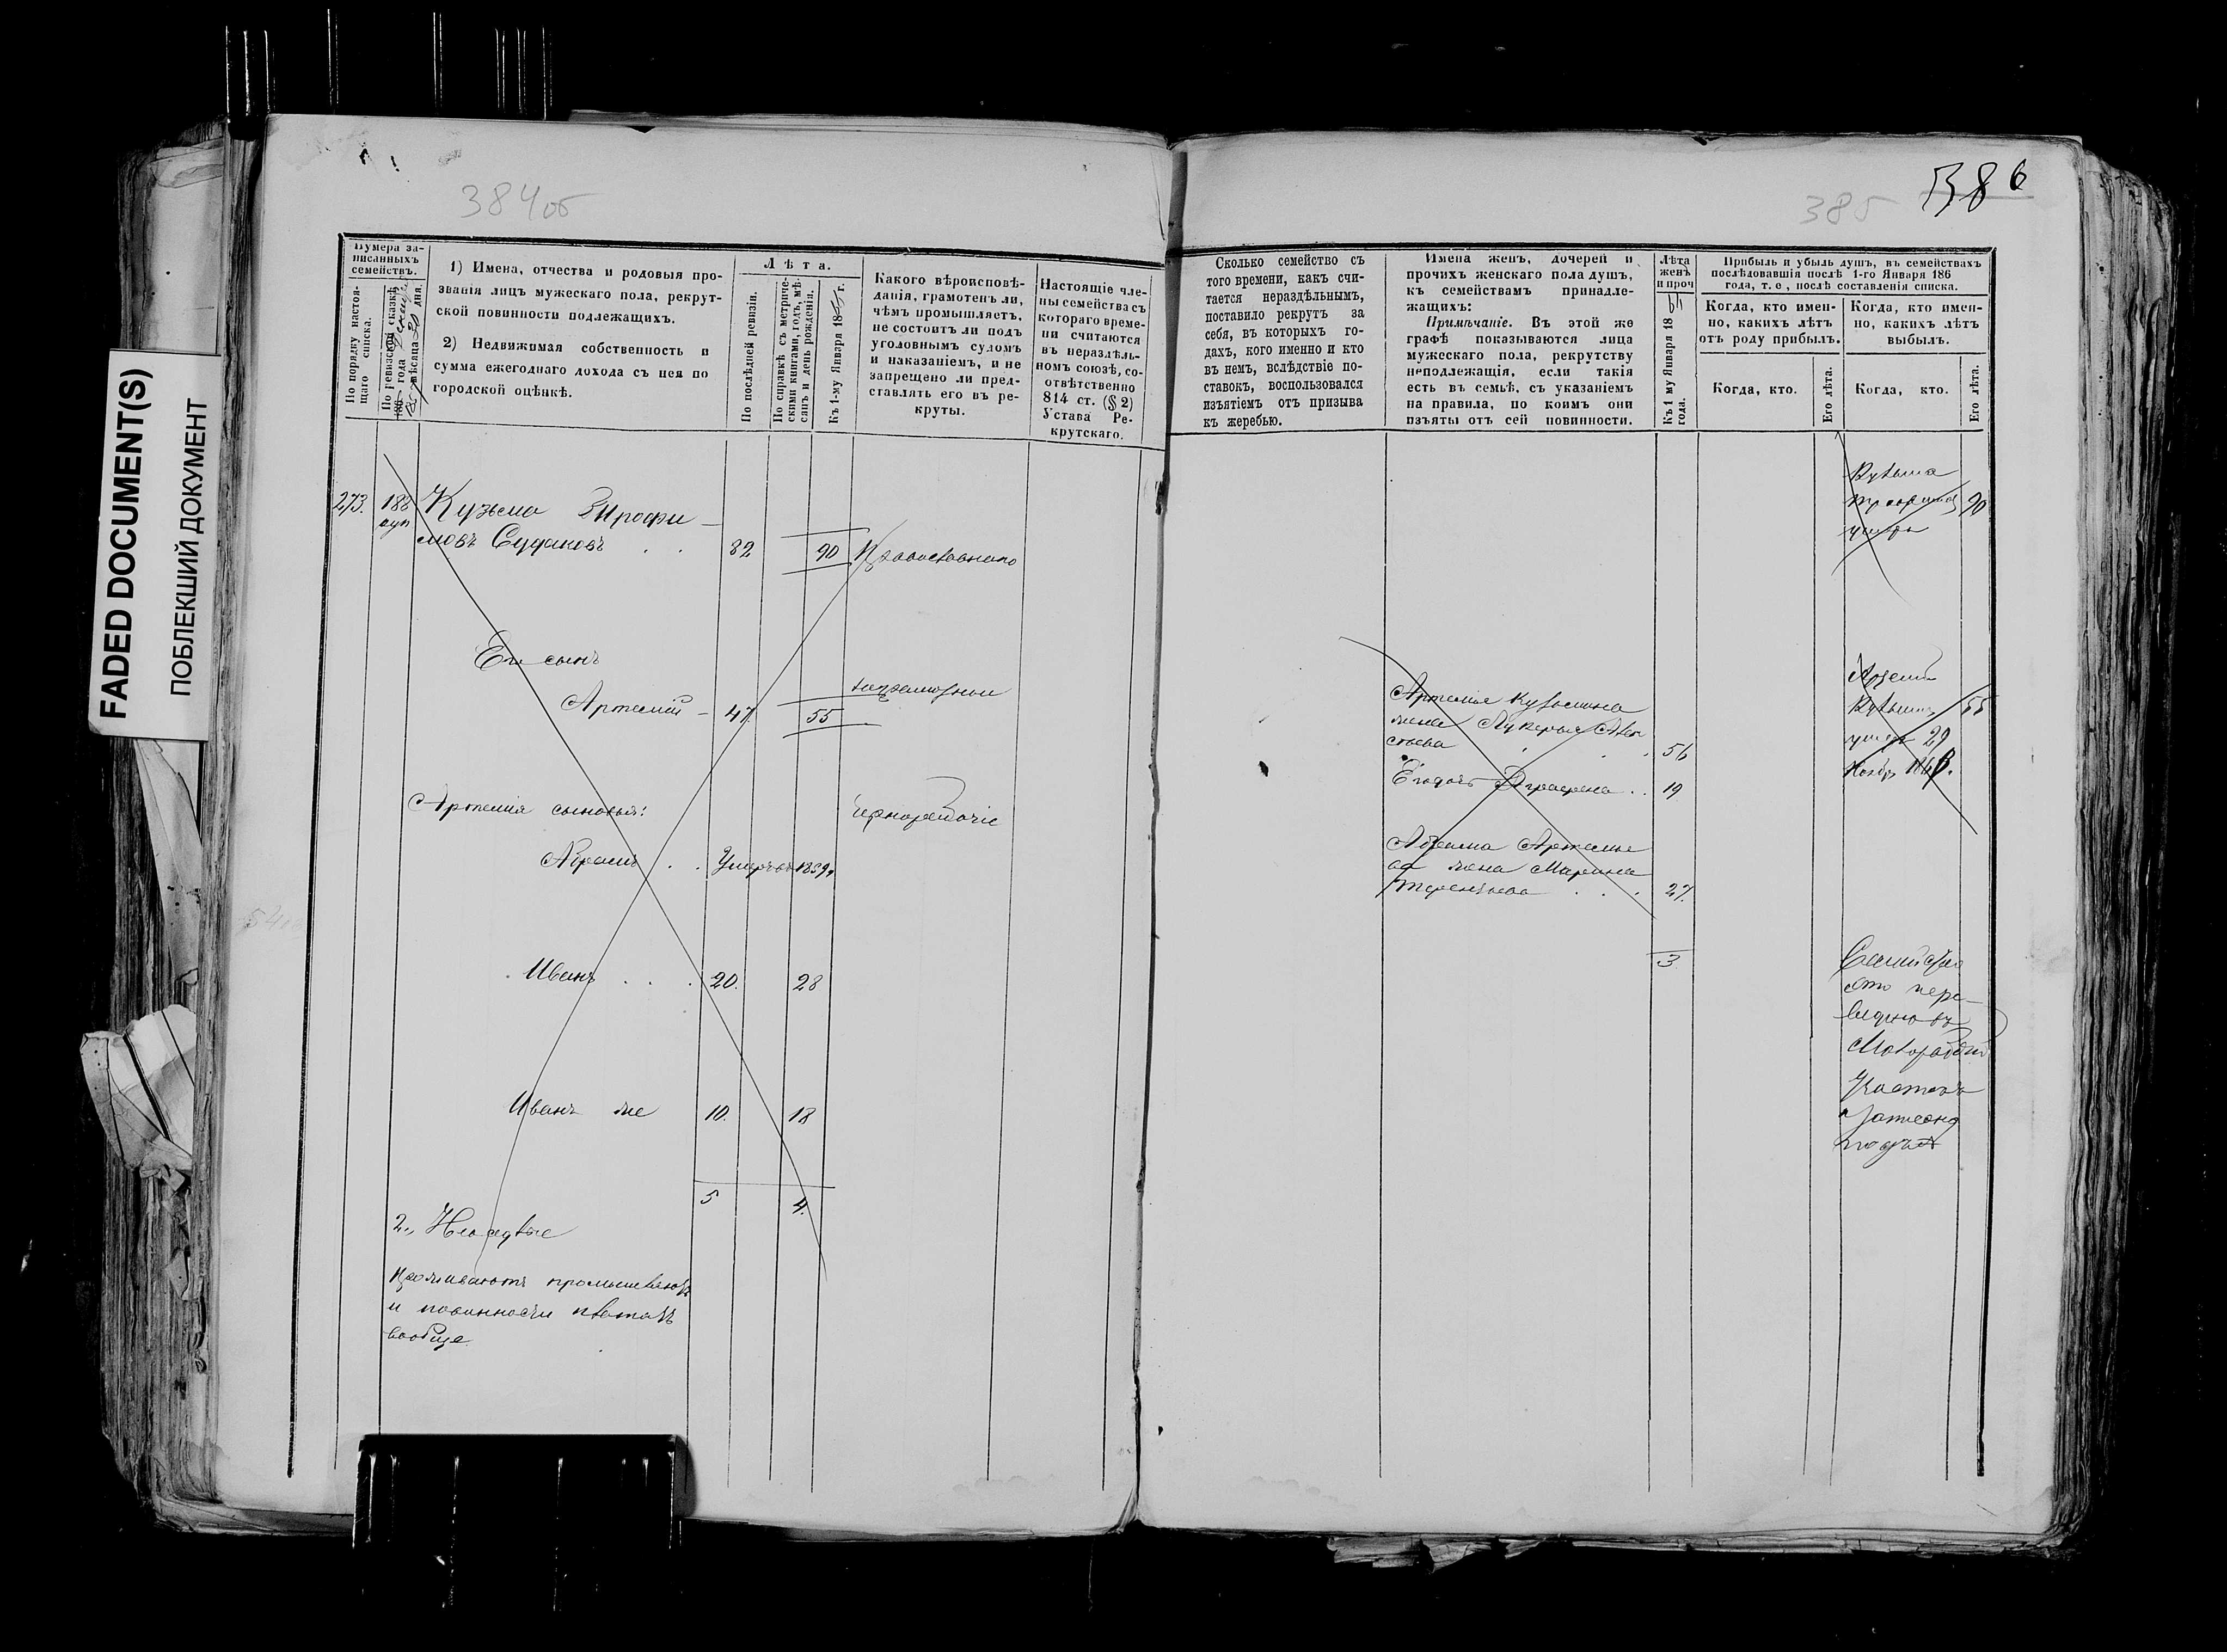 FADED DOCUMENT(S)
ПОБЛЕКШИЙ ДОКУМЕНТ
384об
Нумера за-
писанныхъ
семействъ.
По порядку настоя-
щаго списка.
По ревизской сказкѣ
года
мѣсяца 30 дня.
1) Имена, отчества и родовыя про-
званія лицъ мужескаго пола, рекрут-
ской повинности подлежащихъ.
2) Недвижимая собственность и
сумма ежегоднаго дохода съ нея по
городской оцѣнкѣ.
Лѣта.
По послѣдней ревизіи.
По справкѣ съ метриче-
скими книгами, годъ, мѣ-
сяцъ и день рожденія.
Къ 1-му Января 186 г.
Какого вѣроисповѣ-
данія, грамотенъ ли,
чѣмъ промышляетъ,
не состоитъ ли подъ
уголовнымъ судомъ
и наказаніемъ, и не
запрещено ли пред-
ставлять его въ ре-
круты.
Настоящіе чле-
ны семейства съ
котораго време-
ни считаются
въ нераздѣль-
номъ союзѣ, со-
отвѣтственно
814 ст. (§ 2)
Устава Ре-
крутскаго.
273. 188
Кузьма Трофи-
мовъ Судаковъ . . 82 90 Православнаго
Его сынъ
Артемій - 47 55 неграмотные
Артемія сыновья: Чернорабочіе
Абрамъ . . Умеръ въ 1859
Иванъ . . . 20. 28
Иванъ же 10. 18
5 4.
2., Неимѣютъ
Проживаютъ
и повинности
вообще
385
386
Сколько семейство съ
того времени, какъ счи-
тается нераздѣльнымъ,
поставило рекрутъ за
себя, въ которыхъ го-
дахъ, кого именно и кто
въ немъ, вслѣдствіе по-
ставокъ, воспользовался
изъятіемъ отъ призыва
къ жеребью.
Имена женъ, дочерей и
прочихъ женскаго пола душъ,
къ семействамъ принадле-
жащихъ:
Примѣчаніе. Въ этой же
графѣ показываются лица
мужескаго пола, рекрутству
неподлежащія, если такія
есть въ семьѣ, съ указаніемъ
на правила, по коимъ они
изъяты отъ сей повинности.
Лѣта
женъ
и проч
Къ 1 му Января 18
года.
Прибыль и убыль душъ, въ семействахъ
послѣдовавшія послѣ 1-го Января 186
года, т. е., послѣ составленія списка.
Когда, кто имен-
но, какихъ лѣтъ
отъ роду прибылъ.
Когда, кто имен-
но, какихъ лѣтъ
выбылъ.
Когда, кто.
Его лѣта.
Когда, кто.
Его лѣта.
Кузьма
Трофимов 90
умеръ
Артемія Кузьмина
жена Лукерья
56
Его дочь Аграфена . . 19
Абрама Артемье
ва жена Марина
Терентьева . . . 27.
3
Артемій
Кузьминъ 55
умеръ 29
Ноябр
Семейство
это пере-
ведено въ
участокъ